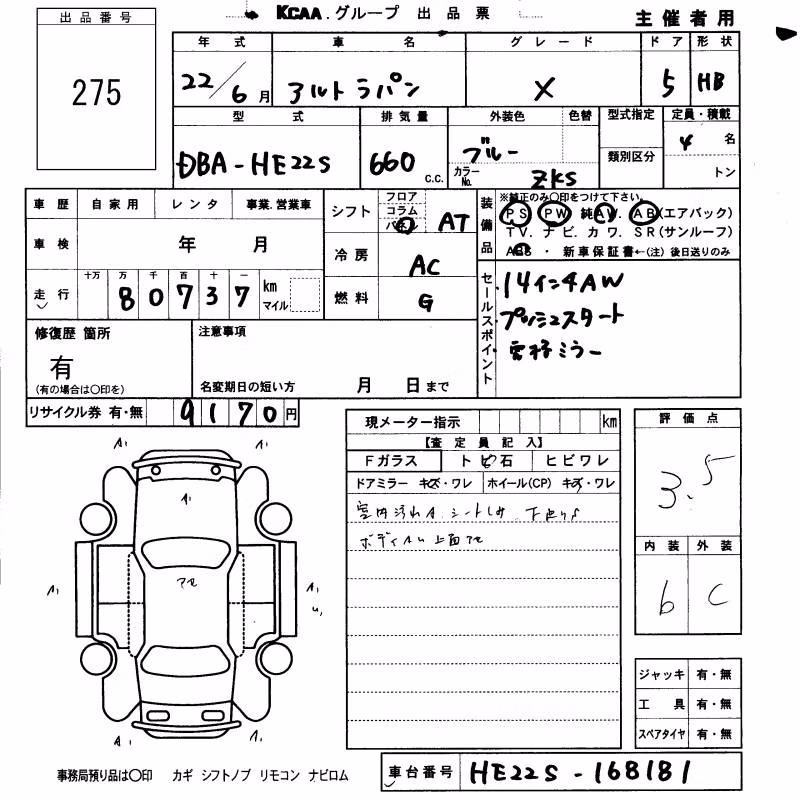 出品番号
275
KCAA.グループ 出品票
主催者用
年式 車名 グレード ドア 形状
22/6月 アルトラパン X 5 HB
型式 排気量 外装色 色替 型式指定 定員・積載
類別区分
DBA-HE22S 660 C.C. ブルー カラーNo. ZKS 4名
トン
車歴 自家用 レンタ 事業.営業車
車検 年 月
走行 十万 万 千 百 十 km マイル
80737
シフト フロア コラム パネル AT
冷房 AC
燃料 G
装備品
※純正のみ〇印をつけて下さい。
PS PW 純AW. AB(エアバック)
TV. ナビ. カワ. SR(サンルーフ)
ABS ・ 新車保証書←(注)後日送りのみ
セールスポイント
14インチAW
プッシュスタート
電格ミラー
修復歴 箇所
有
(有の場合は〇印を)
注意事項
名変期日の短い方 月 日まで
リサイクル券 有・無 9170円
現メーター指示 km
【査定員記入】
Fガラス トビ石 ヒビワレ
ドアミラー キズ・ワレ ホイール(CP) キズ・ワレ
室内汚れA シートしみ 下廻りS
ボディAU 上面アセ
評価点
3.5
内装 外装
b C
ジャッキ 有・無
工具 有・無
スペアタイヤ 有・無
A1 A1
A1
アセ
A1 A1
U1
A1 A1
事務局預り品は〇印 カギ シフトノブ リモコン ナビロム
車台番号 HE22S-168181